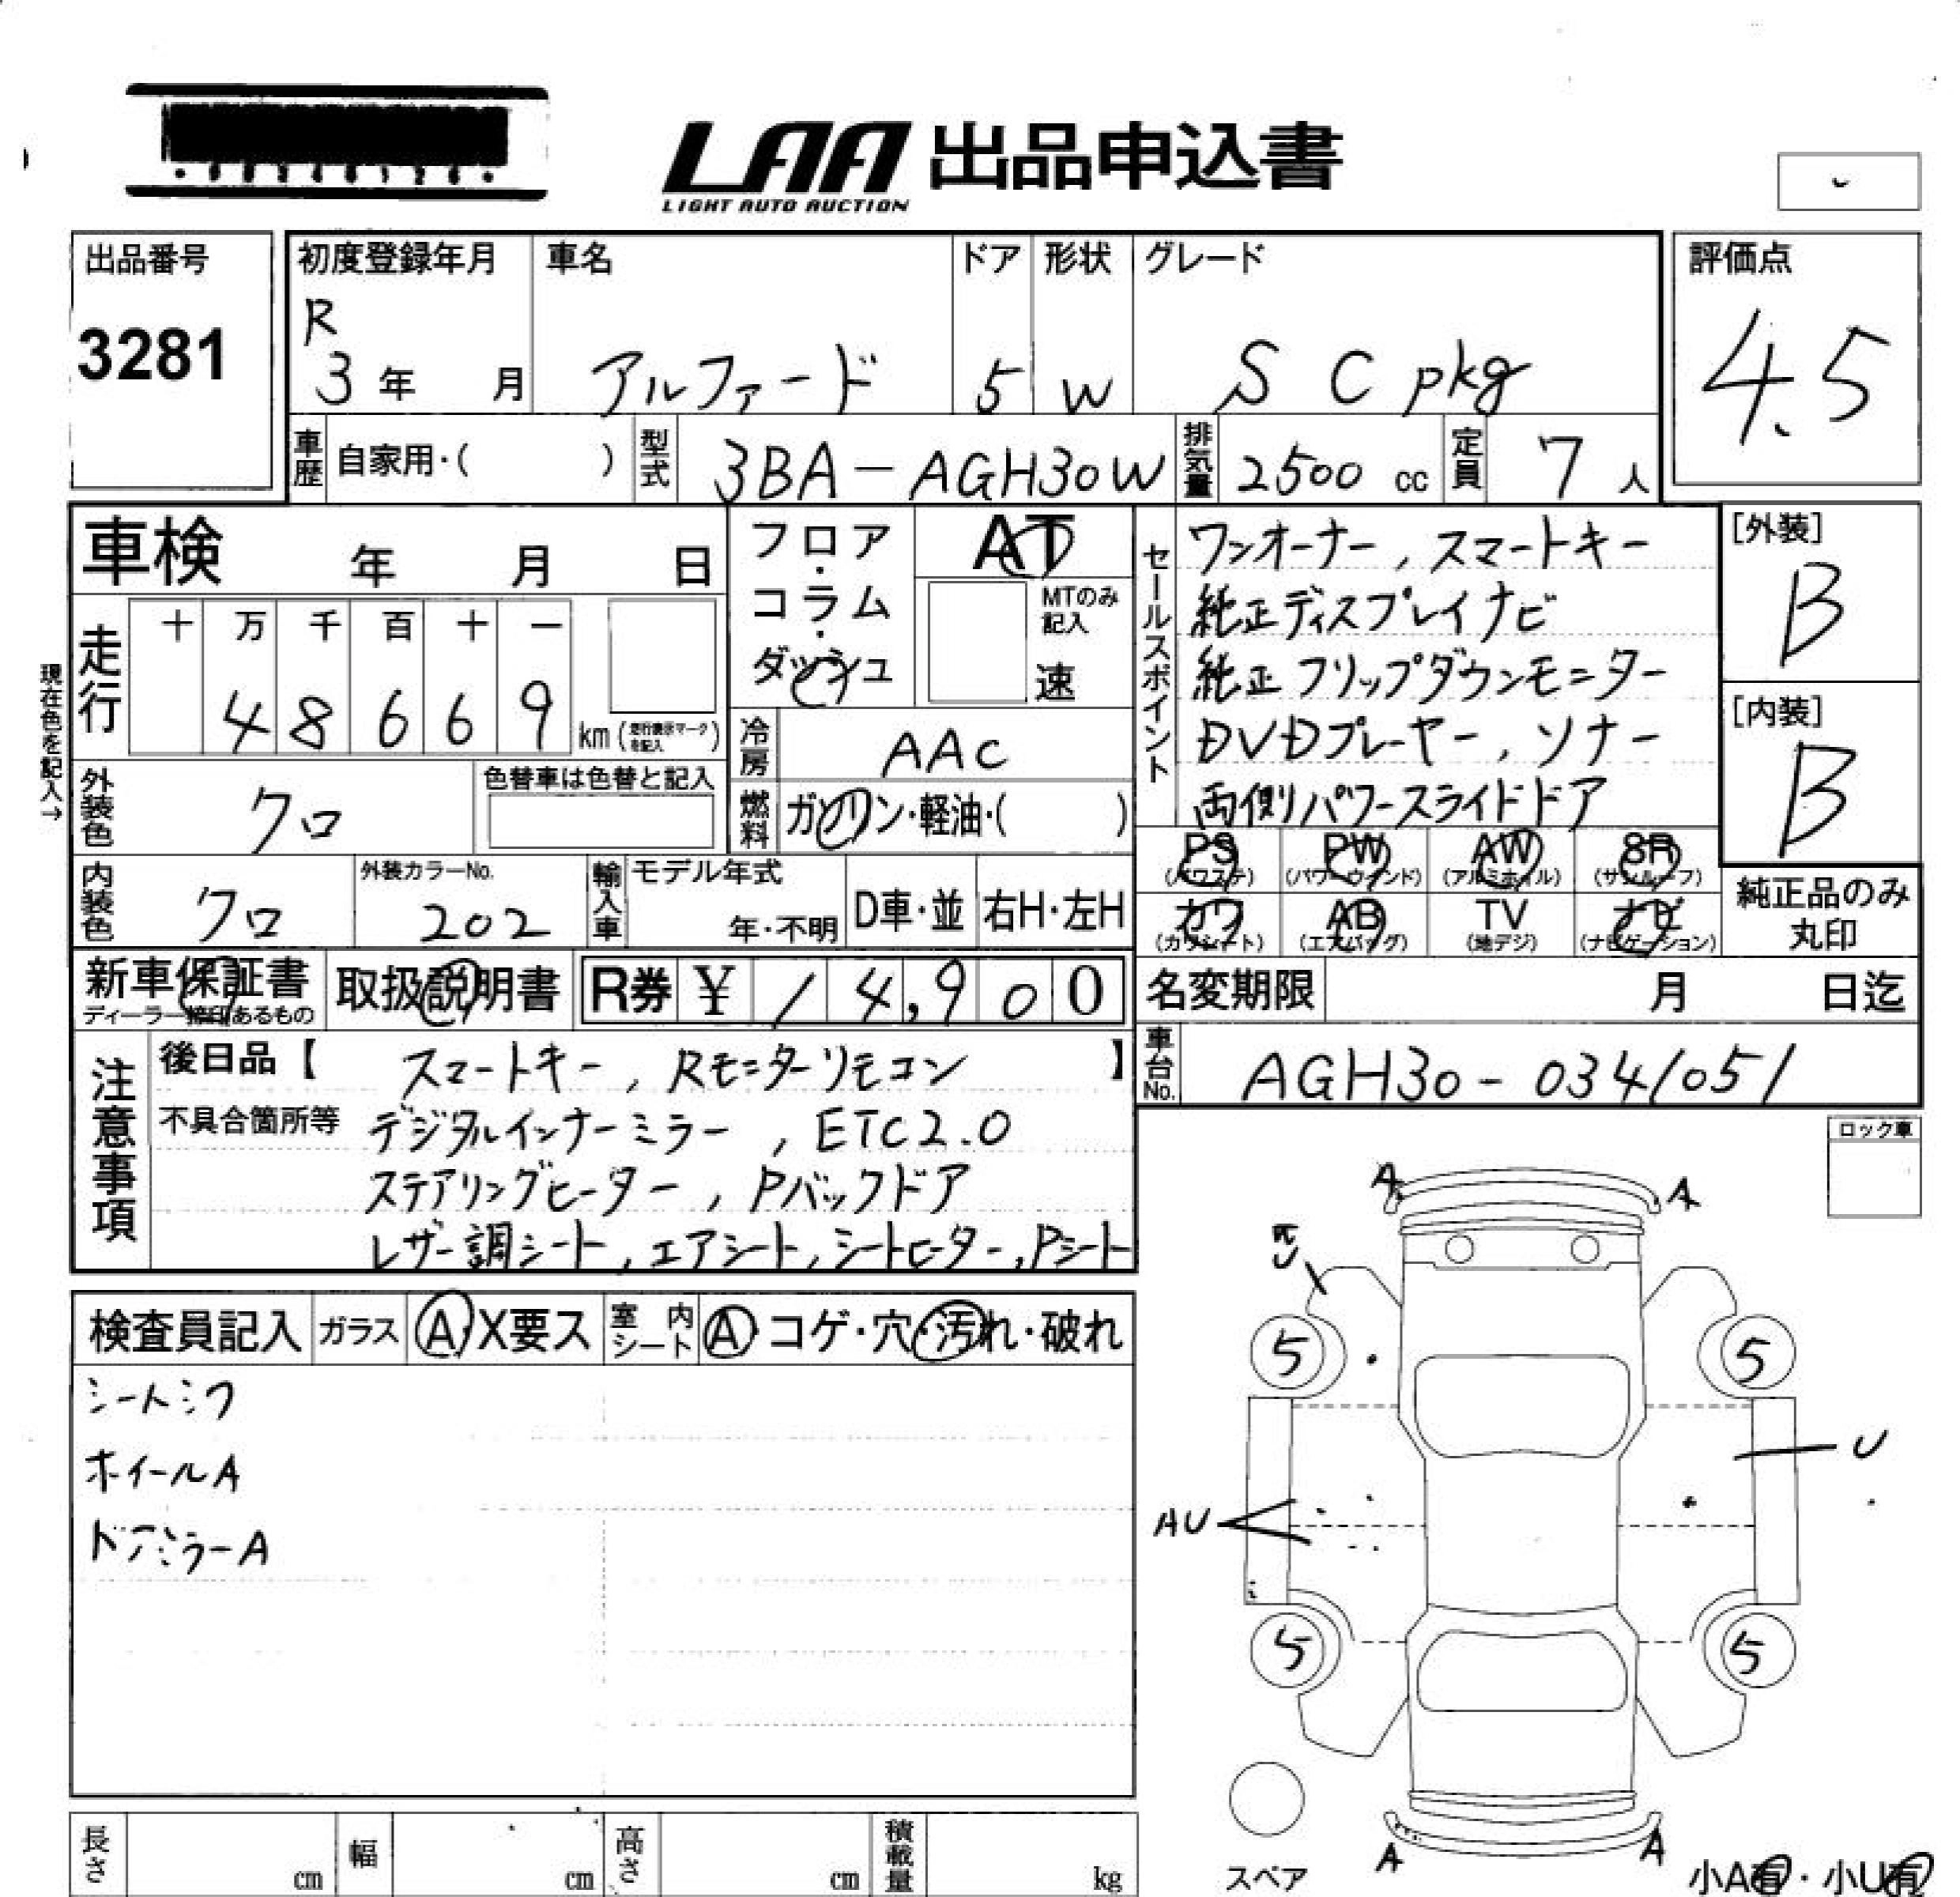 LAA 出品申込書
LIGHT AUTO AUCTION
出品番号
3281
初度登録年月
R
3年 月
車名
アルファード
ドア
5
形状
W
グレード
S C pkg
評価点
4.5
車歴 自家用・( )
型式 3BA-AGH30W
排気量 2500 cc
定員 7 人
車検 年 月 日
フロア・コラム・ダッシュ
AT
MTのみ記入
速
セールスポイント
ワンオーナー, スマートキー
純正ディスプレイナビ
純正フリップダウンモニター
DVDプレーヤー, ソナー
両側パワースライドドア
[外装]
B
[内装]
B
現在色を記入→
走行
十 万 千 百 十 一
4 8 6 6 9 km (走行表示マークを記入)
冷房 AAC
外装色 クロ
色替車は色替と記入
燃料 ガソリン・軽油・( )
PS (パワステ)
PW (パワーウインド)
AW (アルミホイル)
SR (サンルーフ)
カワ (カワシート)
AB (エアバッグ)
TV (地デジ)
ナビ (ナビゲーション)
純正品のみ丸印
内装色 クロ
外装カラーNo.
202
輸入車
モデル年式
年・不明
D車・並
右H・左H
新車保証書
ディーラー捺印あるもの
取扱説明書
R券 ¥ 14,900
名変期限 月 日迄
車台No. AGH30-0341051
注意事項
後日品【 スマートキー, Rモニターリモコン 】
不具合箇所等 デジタルインナーミラー, ETC2.0
ステアリングヒーター, Pバックドア
レザー調シート, エアシート, シートヒーター, Pシート
ロック車
検査員記入
ガラス A・X要ス
室内シート A・コゲ・穴・汚れ・破れ
シートシワ
ホイールA
ドアミラーA
A
A
5
5
U
AU
5
5
A
A
スペア
小A有・小U有
長さ cm
幅 cm
高さ cm
積載量 kg